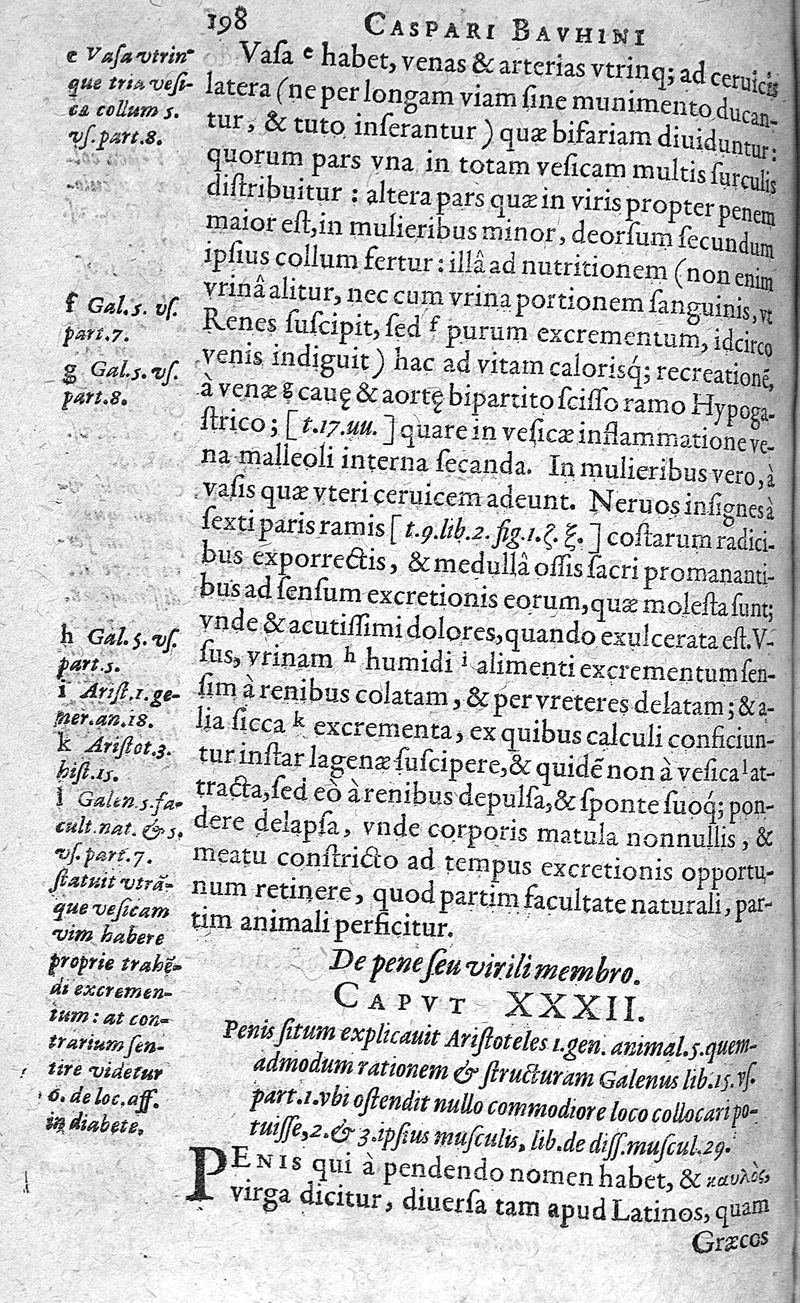 198 CASPARI BAVHINI
Vaſa e habet, venas & arterias vtrinq; ad ceruicis
latera (ne per longam viam ſine munimento ducan-
tur, & tuto inſerantur) quæ bifariam diuiduntur:
quorum pars vna in totam veſicam multis ſurculis
diſtribuitur : altera pars quæ in viris propter penem
maior eſt, in mulieribus minor, deorſum ſecundum
ipſius collum fertur : illâ ad nutritionem (non enim
vrinâ alitur, nec cum vrina portionem ſanguinis, vt
Renes ſuſcipit, ſed f purum excrementum, idcirco
venis indiguit) hac ad vitam calorisq́; recreationē,
à venæ g cauę & aortę bipartito ſciſſo ramo Hypoga-
ſtrico; [t.17.uu.] quare in veſicæ inflammatione ve-
na malleoli interna ſecanda. In mulieribus vero, à
vaſis quæ vteri ceruicem adeunt. Neruos inſignes à
ſexti paris ramis [t.9.lib.2.fig.1.ζ.ξ.] coſtarum radici-
bus exporrectis, & medullâ oſſis ſacri promananti-
bus ad ſenſum excretionis eorum, quæ moleſta ſunt;
vnde & acutiſſimi dolores, quando exulcerata eſt. V-
ſus, vrinam h humidi i alimenti excrementum ſen-
ſim à renibus colatam, & per vreteres delatam; & a-
lia ſicca k excrementa, ex quibus calculi conficiun-
tur inſtar lagenæ ſuſcipere, & quidē non à veſica l at-
tracta, ſed eò à renibus depulſa, & ſponte ſuoq́; pon-
dere delapſa, vnde corporis matula nonnullis, &
meatu conſtricto ad tempus excretionis opportu-
num retinere, quod partim facultate naturali, par-
tim animali perficitur.
e Vaſa vtrin-
que tria veſi-
cæ collum 5.
vſ.part.8.
f Gal.5. vſ.
part.7.
g Gal.5.vſ.
part.8.
h Gal.5.vſ.
part.5.
i Ariſt.1.ge-
ner.an.18.
k Ariſtot.3.
hiſt.15.
l Galen.5.fa-
cult.nat. & 5.
vſ.part.7.
ſtatuit vtrā-
que veſicam
vim habere
proprie trahē-
di excremen-
tum : at con-
trarium ſen-
tire videtur
6. de loc.aff.
in diabete.
De pene ſeu virili membro.
CAPVT XXXII.
Penis ſitum explicauit Ariſtoteles 1.gen. animal.5.quem-
admodum rationem & ſtructuram Galenus lib.15.vſ.
part.1.vbi oſtendit nullo commodiore loco collocari po-
tuiſſe, 2. & 3.ipſius muſculis, lib.de diſſ.muſcul.29.
PENIS qui à pendendo nomen habet, & καυλὸς,
virga dicitur, diuerſa tam apud Latinos, quam
Græcos